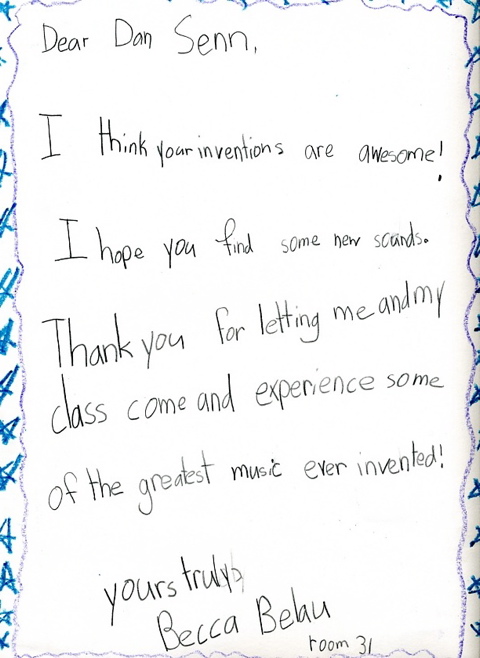 Dear Dan Senn,
I think your inventions are awesome!
I hope you find some new sounds.
Thank you for letting me and my
class come and experience some
of the greatest music ever invented!
yours truly,
Becca Belau
room 31